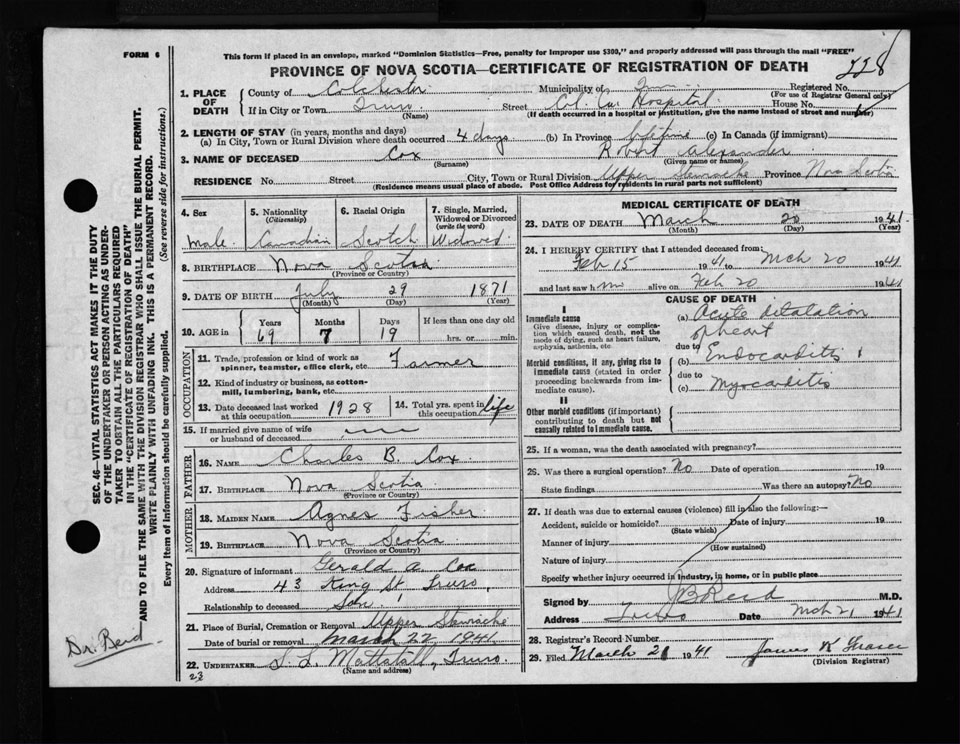 FORM 6
This form if placed in an envelope, marked "Dominion Statistics—Free, penalty for improper use $300," and properly addressed will pass through the mail "FREE"
PROVINCE OF NOVA SCOTIA—CERTIFICATE OF REGISTRATION OF DEATH
228
1. PLACE OF DEATH
County of Colchester Municipality of Registered No.
(For use of Registrar General only)
If in City or Town Truro Street Col. Co. Hospital House No.
(Name) (If death occurred in a hospital or institution, give the name instead of street and number)
2. LENGTH OF STAY (in years, months and days)
(a) In City, Town or Rural Division where death occurred 4 days (b) In Province lifetime (c) In Canada (if immigrant)
3. NAME OF DECEASED Cox Robert Alexander
(Surname) (Given name or names)
RESIDENCE No. Street City, Town or Rural Division Upper Stewiacke Province Nova Scotia
(Residence means usual place of abode. Post Office Address for residents in rural parts not sufficient)
SEC. 46—VITAL STATISTICS ACT MAKES IT THE DUTY
OF THE UNDERTAKER OR PERSON ACTING AS UNDER-
TAKER TO OBTAIN ALL THE PARTICULARS REQUIRED
IN THE "CERTIFICATE OF REGISTRATION OF DEATH"
AND TO FILE THE SAME WITH THE DIVISION REGISTRAR WHO SHALL ISSUE THE BURIAL PERMIT.
WRITE PLAINLY WITH UNFADING INK. THIS IS A PERMANENT RECORD.
Every item of information should be carefully supplied. (See reverse side for instructions.)
4. Sex
Male
5. Nationality
(Citizenship)
Canadian
6. Racial Origin
Scotch
7. Single, Married,
Widowed or Divorced
(write the word)
Widowed
8. BIRTHPLACE Nova Scotia
(Province or Country)
9. DATE OF BIRTH July 29 1871
(Month) (Day) (Year)
10. AGE in Years Months Days If less than one day old
69 7 19 hrs. or min.
OCCUPATION
11. Trade, profession or kind of work as
spinner, teamster, office clerk, etc. Farmer
12. Kind of industry or business, as cotton-
mill, lumbering, bank, etc.
13. Date deceased last worked
at this occupation 1928
14. Total yrs. spent in
this occupation life
15. If married give name of wife
or husband of deceased
FATHER
16. NAME Charles B. Cox
17. BIRTHPLACE Nova Scotia
(Province or Country)
MOTHER
18. MAIDEN NAME Agnes Fisher
19. BIRTHPLACE Nova Scotia
(Province or Country)
20. Signature of informant Gerald A. Cox
Address 43 King St, Truro
Relationship to deceased Son
21. Place of Burial, Cremation or Removal Upper Stewiacke
Date of burial or removal March 22 1941
22. UNDERTAKER Mattatall, Truro.
(Name and address)
23
Dr. Reid
MEDICAL CERTIFICATE OF DEATH
23. DATE OF DEATH March 20 1941
(Month) (Day) (Year)
24. I HEREBY CERTIFY that I attended deceased from:
Feb 15 1941 to Mch 20 1941
and last saw him alive on Feb 20 1941
CAUSE OF DEATH
I
Immediate cause
Give disease, injury or complica-
tion which caused death, not the
mode of dying, such as heart failure,
asphyxia, asthenia, etc.
(a) Acute dilatation
of heart
due to
Morbid conditions, if any, giving rise to
immediate cause (stated in order
proceeding backwards from im-
mediate cause).
(b) Endocarditis
due to
(c) Myocarditis
II
Other morbid conditions (if important)
contributing to death but not
causally related to immediate cause.
25. If a woman, was the death associated with pregnancy?
26. Was there a surgical operation? No Date of operation 19
State findings Was there an autopsy? No
27. If death was due to external causes (violence) fill in also the following:—
Accident, suicide or homicide? Date of injury 19
(State which)
Manner of injury
(How sustained)
Nature of injury
Specify whether injury occurred in industry, in home, or in public place
Signed by Reid M.D.
Address Truro Date Mch 21 1941
28. Registrar's Record Number
29. Filed March 21 1941 James K Fraser
(Division Registrar)